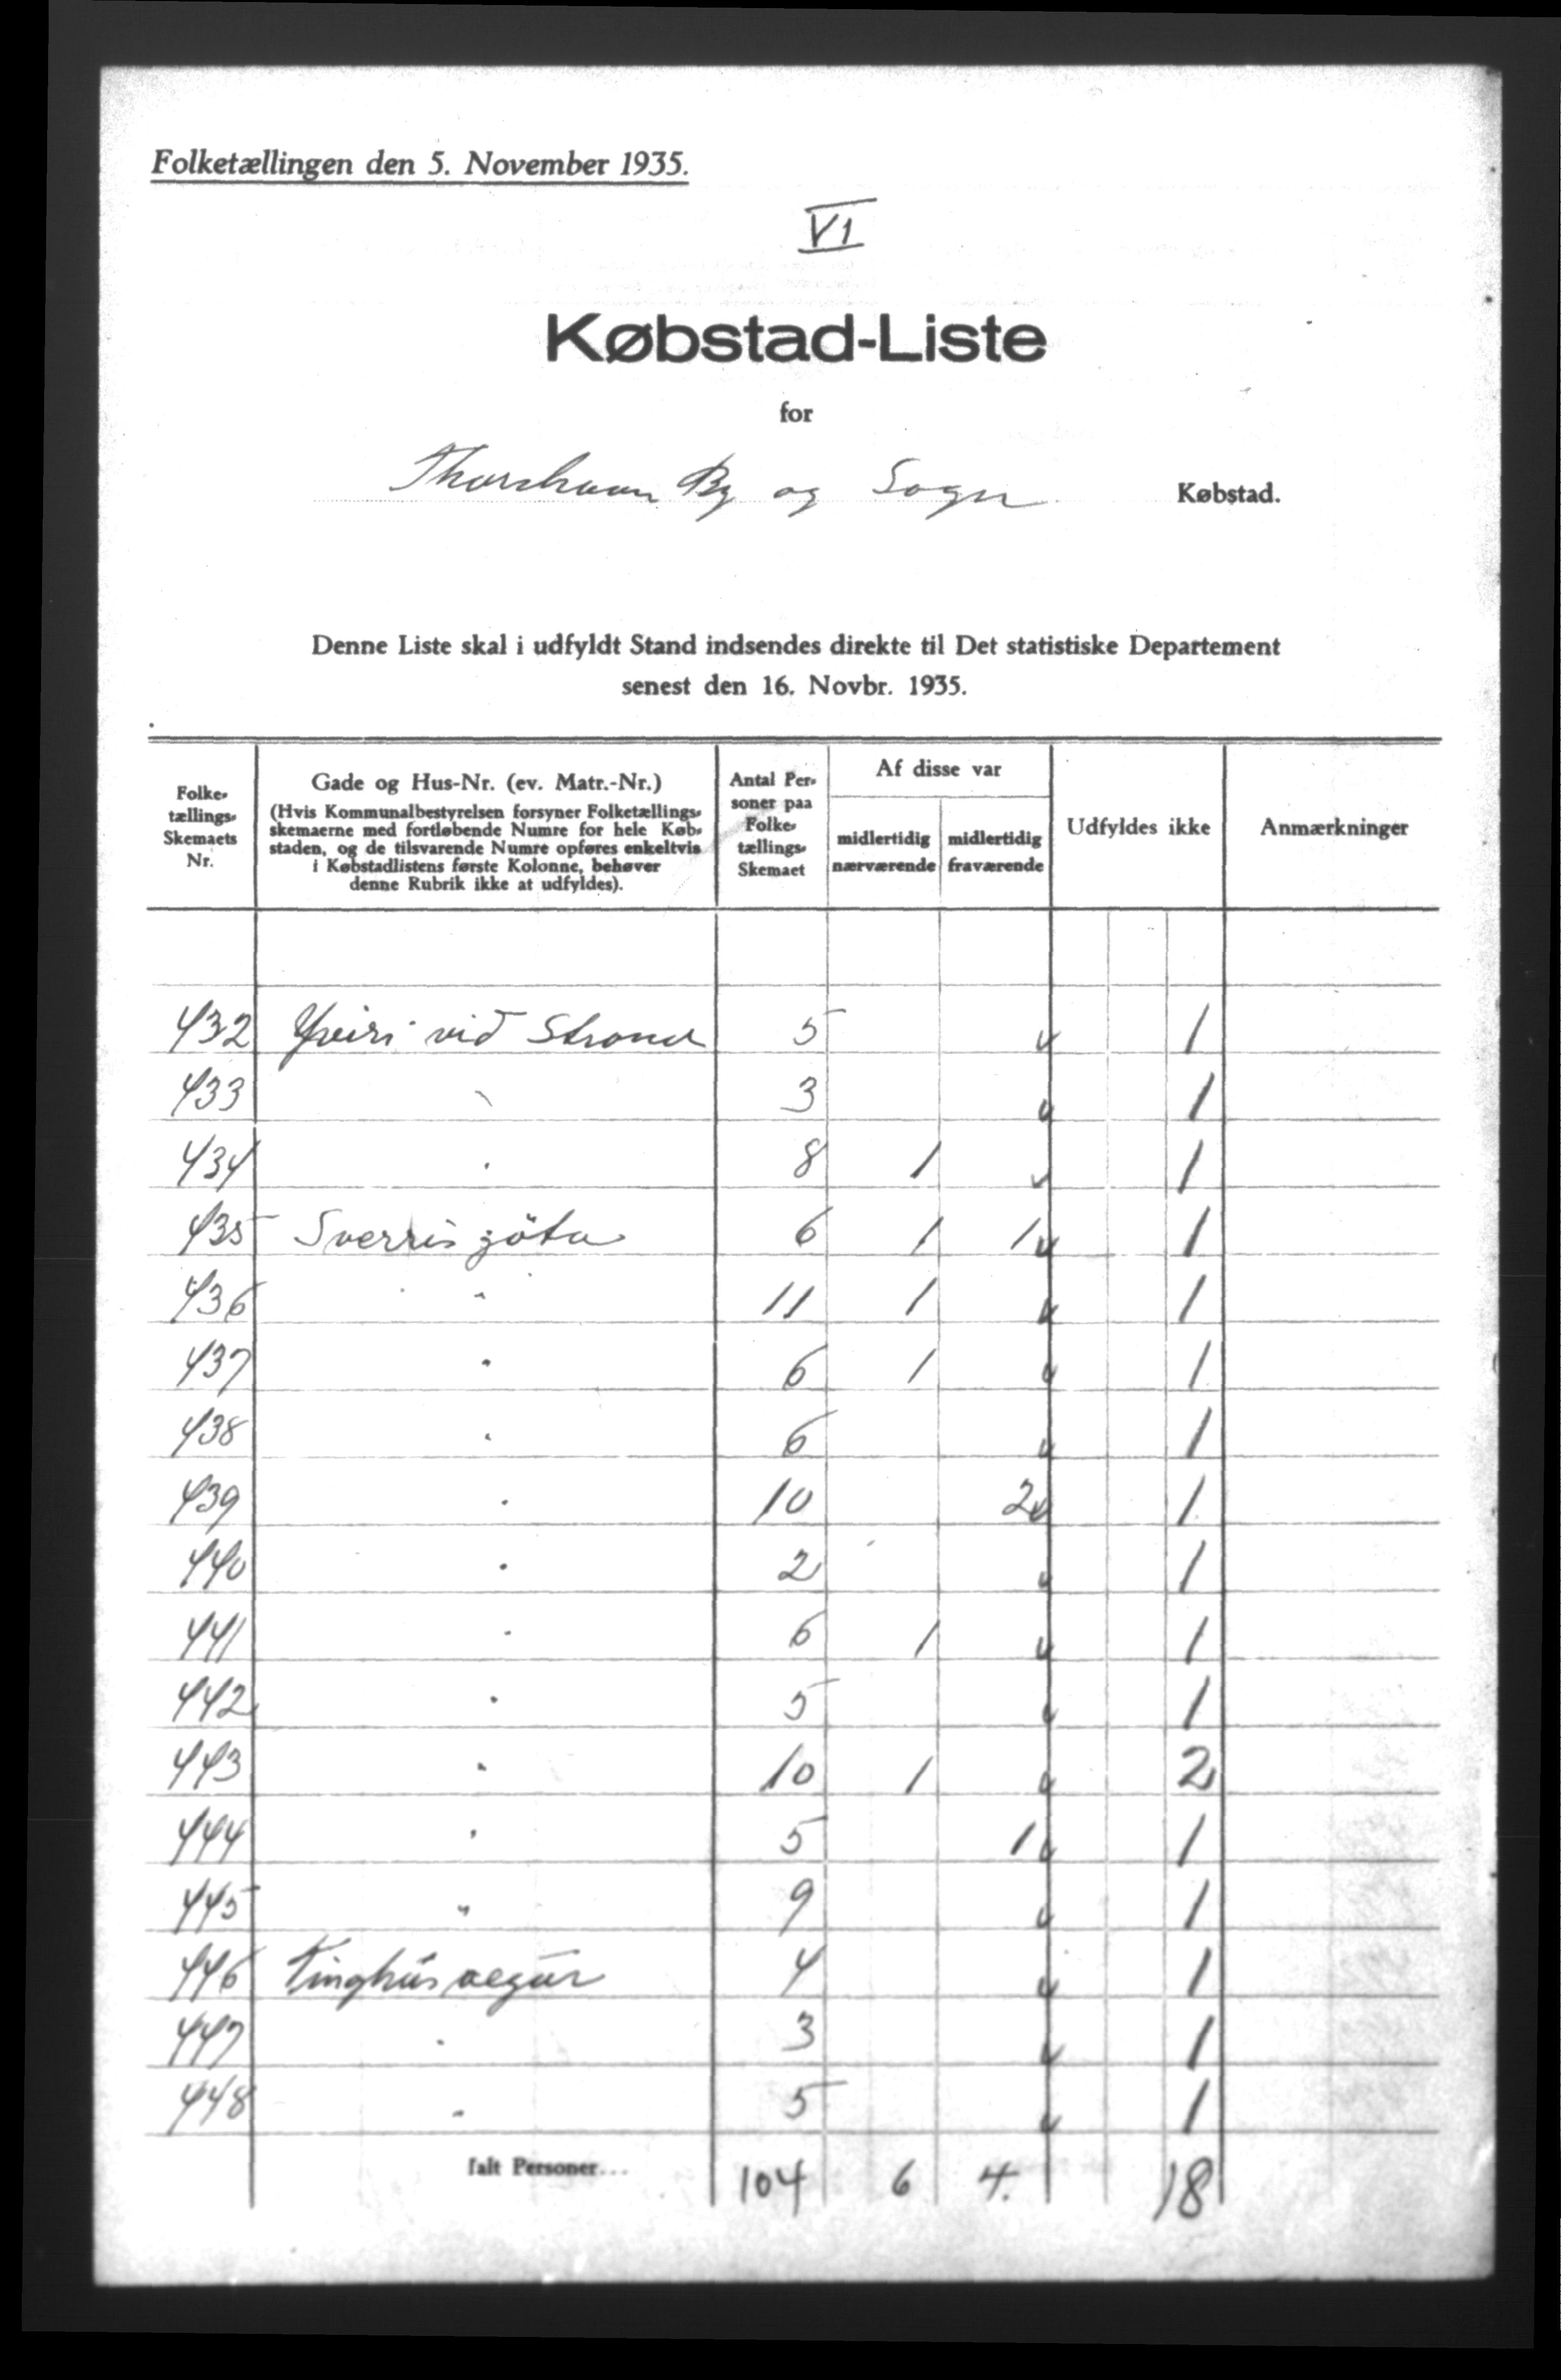 Folketællingen den 5. November 1935.
VI
Købstad-Liste
for
Thorshavn By og Sogn Købstad.
Denne Liste skal i udfyldt Stand indsendes direkte til Det statistiske Departement
senest den 16. Novbr. 1935.
Folke-
tællings-
Skemaets
Nr.
Gade og Hus-Nr. (ev. Matr.-Nr.)
(Hvis Kommunalbestyrelsen forsyner Folketællings-
skemaerne med fortløbende Numre for hele Køb-
staden, og de tilsvarende Numre opføres enkeltvis
i Købstadlistens første Kolonne, behøver
denne Rubrik ikke at udfyldes).
Antal Per-
soner paa
Folke-
tællings-
Skemaet
Af disse var
midlertidig
nærværende
midlertidig
fraværende
Udfyldes ikke
Anmærkninger
432 Yviri við Strond 5 v 1
433 " 3 v 1
434 " 8 1 v 1
435 Sverris göta 6 1 1 v 1
436 " 11 1 v 1
437 " 6 1 v 1
438 " 6 v 1
439 " 10 2 v 1
440 " 2 v 1
441 " 6 1 v 1
442 " 5 v 1
443 " 10 1 v 2
444 " 5 1 v 1
445 " 9 v 1
446 Tinghúsvegur 4 v 1
447 " 3 v 1
448 " 5 v 1
Ialt Personer... 104 6 4. 18